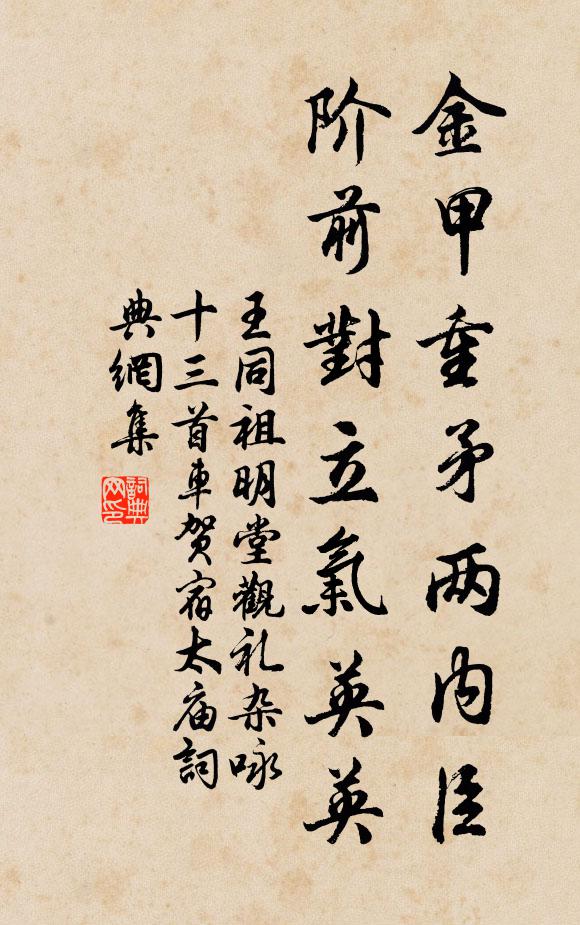 金甲重矛两内臣
阶前對立氣英英
王同祖明堂觀礼杂咏
十三首車贺宿太庙詞
典網集
詞典网印